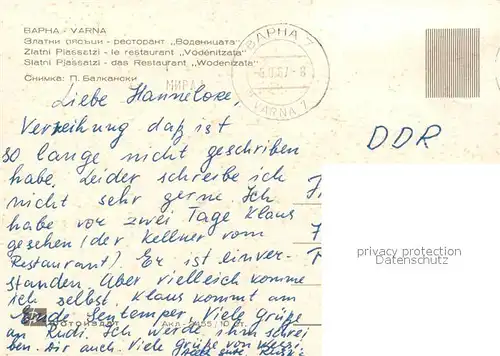 ВАРНА - VARNA
Златни пясъци - ресторант „Воденицата“
Zlatni Piassatzi - le restaurant „Vodenitzata“
Slatni Pjassatzi - das Restaurant „Wodenizata“
Снимка: П. Балкански
ВАРНА 7
VARNA 7
Liebe Hannelore,
Verzeihung daß ist
so lange nicht geschrieben
habe. Leider schreibe ich
nicht sehr gerne. Ich
habe vor zwei Tage Klaus
gesehen (der Kellner vom
Restaurant). Er ist einver-
standen. Aber vielleich komme
ich selbst. Klaus kommt am
Ende Sentemper. Viele grüße
an Rudi. Ich werde ihm schrei-
ben. Dir auch. Viele grüße von
DDR
privacy protection
Datenschutz